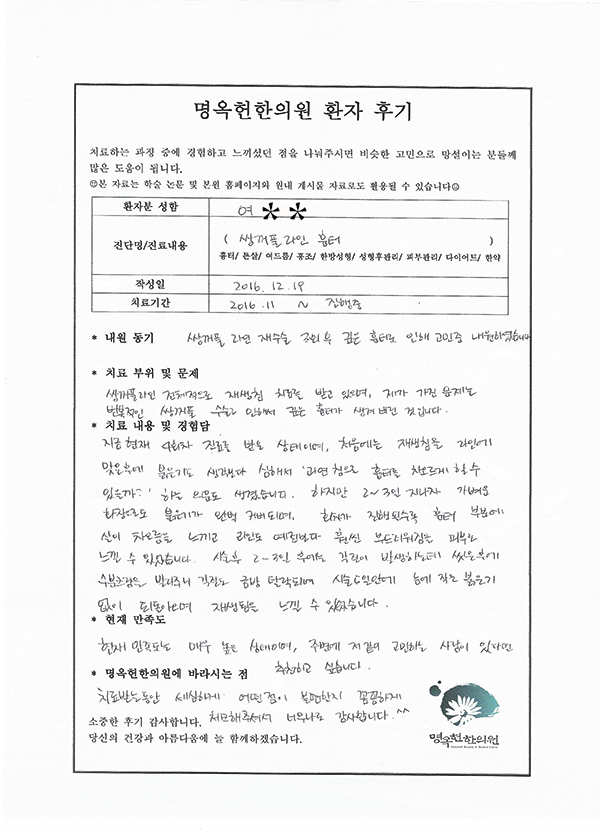 명옥헌한의원 환자 후기
치료하는 과정 중에 경험하고 느끼셨던 점을 나눠주시면 비슷한 고민으로 망설이는 분들께
많은 도움이 됩니다.
☺본 자료는 학술 논문 및 본원 홈페이지와 원내 게시물 자료로도 활용될 수 있습니다☺
환자분 성함 여 * *
진단명/진료내용 ( 쌍꺼풀라인 흉터 )
흉터/ 튼살/ 여드름/ 홍조/ 한방성형/ 성형후관리/ 피부관리/ 다이어트/ 한약
작성일 2016. 12. 19
치료기간 2016. 11 ~ 진행중
* 내원 동기 쌍꺼풀 라인 재수술 3회 후 깊은 흉터로 인해 고민중 내원하였습니다
* 치료 부위 및 문제
쌍꺼풀라인 전체적으로 재생침 치료를 받고 있으며, 제가 가진 문제는
반복적인 쌍꺼풀 수술로 인해서 깊은 흉터가 생겨 버린 것입니다.
* 치료 내용 및 경험담
지금 현재 4회차 진료를 받은 상태이며, 처음에는 재생침을 라인에
맞은후에 붉은기도 생각보다 심해서 '과연 침으로 흉터를 차오르게 할 수
있을까?' 하는 의문도 생겼습니다. 하지만 2~3일 지나자 가벼운
화장으로도 붉은기가 완벽 커버되며, 회차가 진행될수록 흉터 부분에
살이 차오름을 느끼고 라인도 예전보다 훨씬 부드러워짐을 피부로
느낄 수 있었습니다. 시술후 2~3일 후에는 각질이 발생하는데 씻은후에
수분크림을 발라주니 각질도 금방 탈락되며 시술 6일안에 눈에 작은 붉은기
없이 되돌아오며 재생됨을 느낄 수 있었습니다.
* 현재 만족도
현재 만족도는 매우 높은 상태이며, 주변에 저같이 고민하는 사람이 있다면
추천하고 싶습니다.
* 명옥헌한의원에 바라시는 점
치료받는동안 세심하게 어떤점이 불편한지 꼼꼼하게
체크해주셔서 너무나도 감사합니다. ^^
소중한 후기 감사합니다.
당신의 건강과 아름다움에 늘 함께하겠습니다.
명옥헌한의원